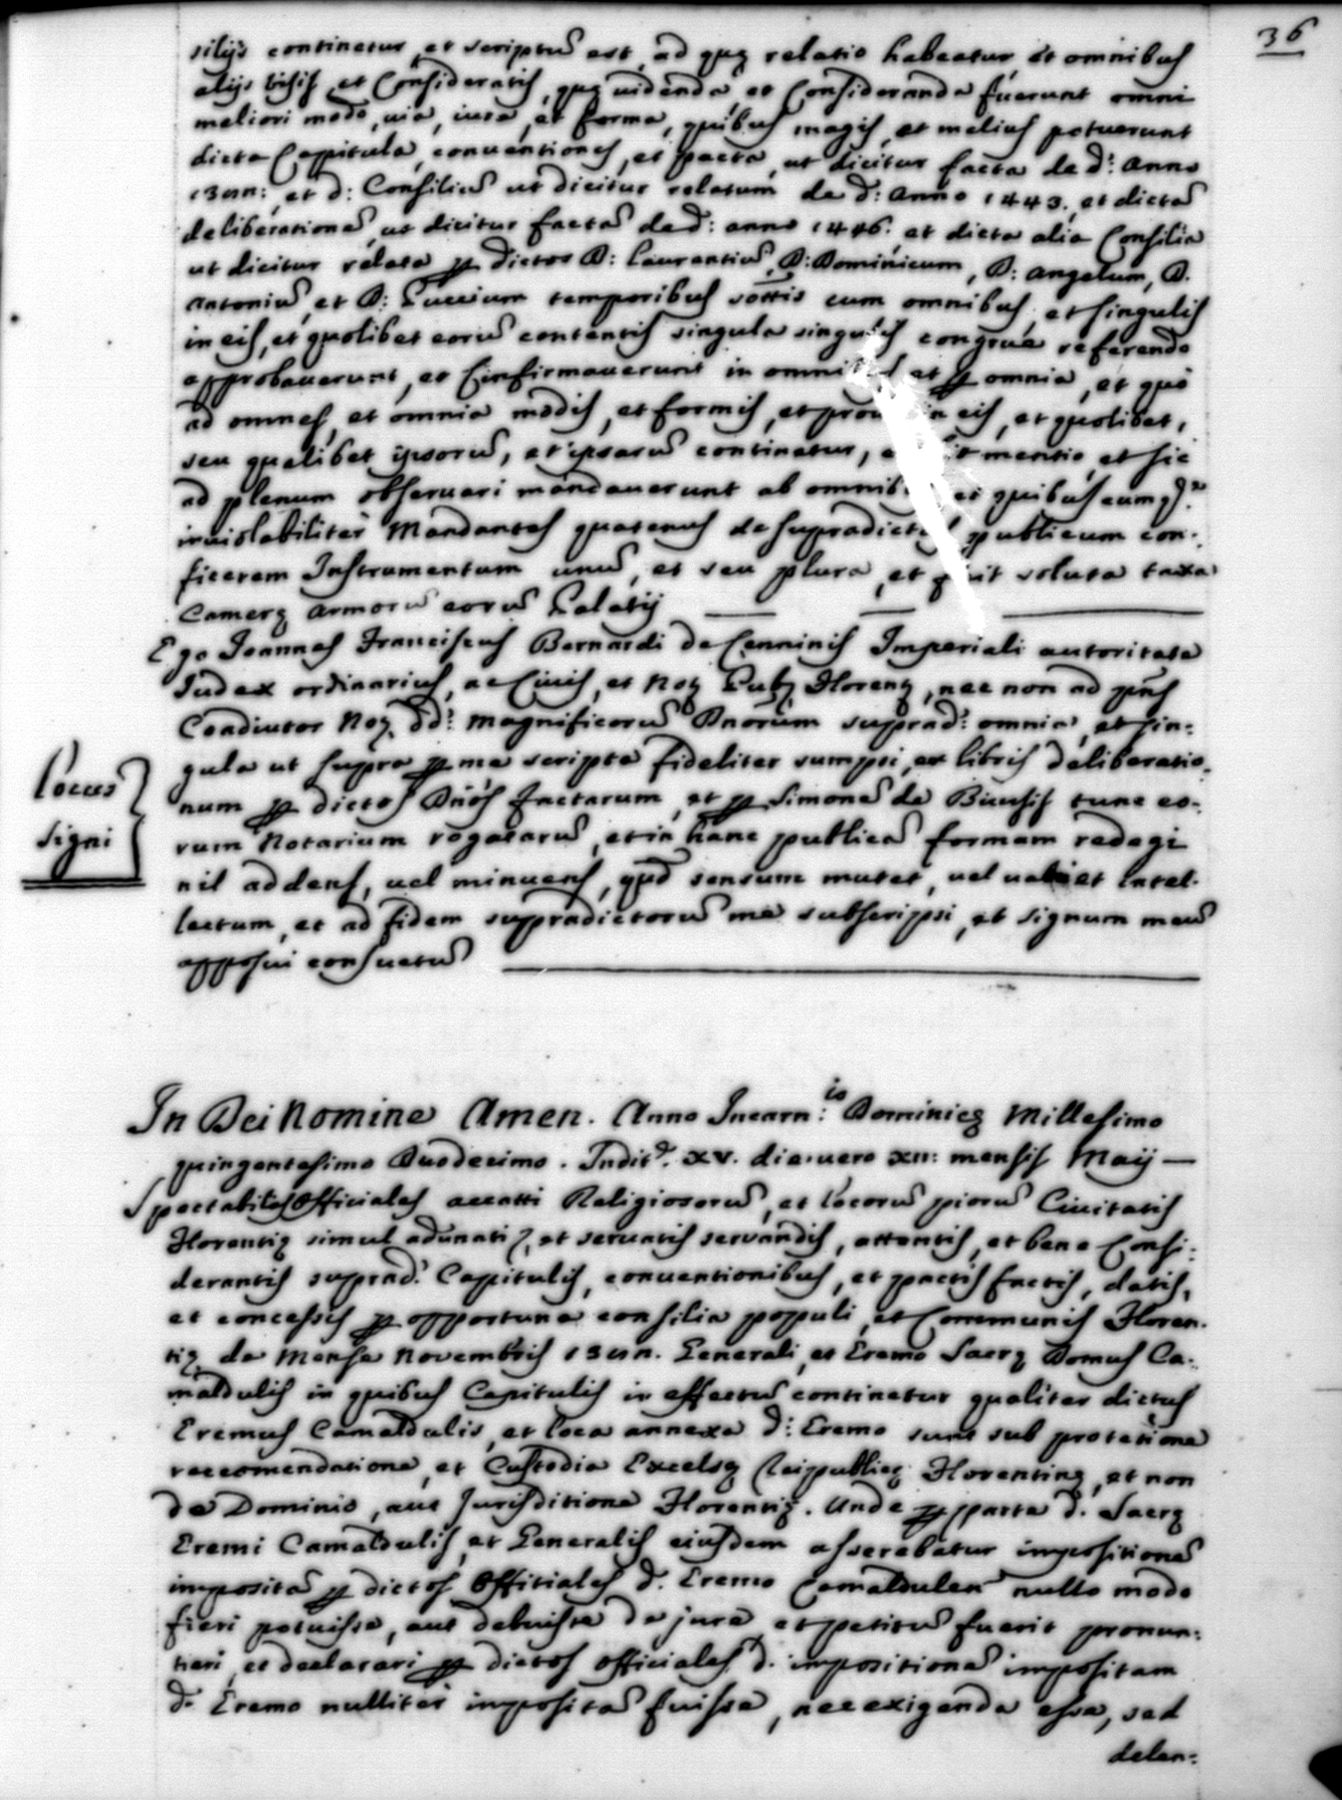 36
silijs continetur, et scriptũ est, ad quę relatio habeatur et omnibus
alijs visis, et Consideratis, quę uidenda, et Consideranda fuerunt omni
meliori modo, uia, iure, et forma, quibus magis, et melius potuerunt
dicta Capitula, conuentiones, et pacta, ut dicitur facta de d: Anno
et d: Consiliũ ut dicitur relatum de d: Anno 1443. et dictã
deliberationẽ, ut dicitur factã de d: anno 1446. et dicta alia Consilia
ut dicitur relata p dictos D: Laurentiũ, D: Dominicum, D: Angelum, D.
Antoniũ, et D: Puccium temporibus sõttis cum omnibus, et singulis
in eis, et quolibet eorũ contentis singula singulis congrue referendo
approbauerunt, et Confirmauerunt in omnibus et p omnia, et quo
ad omnes, et omnia modis, et formis, et prout in eis, et quolibet,
seu qualibet ipsorũ, et ipsarũ continetur, mentio, et sic
ad plenum obseruari mandauerunt ab omnibus et quibuscumq
inuiolabiliter Mandantes quatenus de supradictis publicum con-
ficerem Instrumentum unũ, et seu plura, et soluta taxa
Camerę Armorũ eorũ Palatij
Ego Joannes Franciscus Bernardi de Cenninis Imperiali autoritate
Judex ordinarius, ac Ciuis, et Noţ Pubţ Florenţ, nec non ad pñs
Coadiutor Noţ dd: magnificorũ Dnorum suprad: omnia, et sin:
gula ut supra p me scripta fideliter sumpsi, ex libris deliberatio-
num p dictos Dños factarum, et p Simonẽ de tunc eo-
rum Notarium rogatarũ, et in hanc publicã formam redegi
nil addens, uel minuens, quod sensum mutet, uel uariet intel-
lectum, et ad fidem supradictorũ me subscripsi, et signum meũ
apposui consuetũ
Locus
Signi
In Dei Nomine Amen. Anno Incarn:is Dominicę Millesimo
quingentesimo Duodecimo. Indit.e XV. die uero XII: mensis Maij
Spectabiles Officiales accatti Religiosorũ, et locorũ piorũ Ciuitatis
Florentię simul adunati, et seruatis servandis, attentis, et bene Consi:
deratis suprad: Capitulis, conuentionibus, et pactis factis, datis,
et concessis p opportuna consilia populi, et Communis Floren-
tię de Mense Novembris Generali, et Eremo Sacrę Domus Ca-
maldulis in quibus Capitulis in effectu continetur qualiter dictus
Eremus Camaldulis, et loca annexa d: Eremo sunt sub protetione
reccomendatione, et Custodia Excelsę Reipublicę Florentinę, et non
de Dominio, aut Jurisditione Florentię. Unde p parte d. Sacrę
Eremi Camaldulis, et Generalis eiusdem asserebatur impositionẽ
impositã p dictos Officiales d. Eremo Camaldulen nullo modo
fieri potuisse, aut debuisse de jure, et petitũ fuerit pronun:
tiari, et declarari p dictos officiales d. impositionẽ impositam
d. Eremo nulliter impositã fuisse, nec exigenda esse, sed
delen: